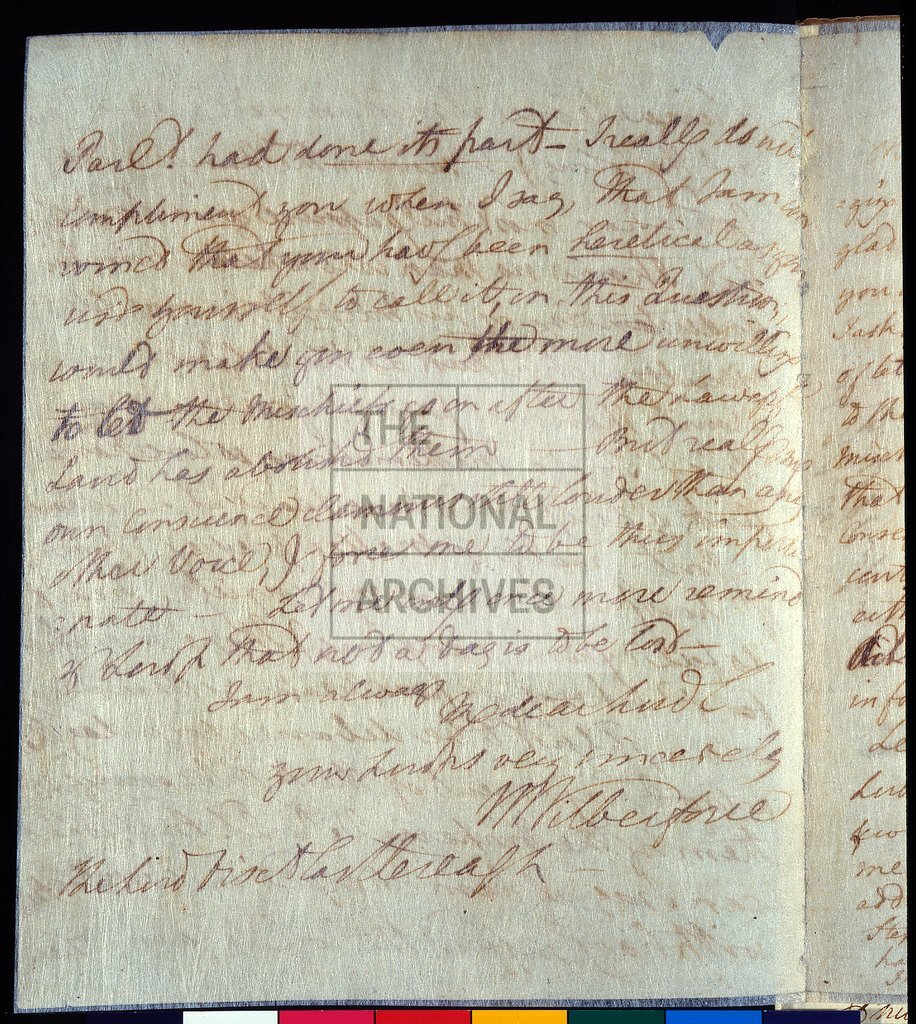 Parlt. had done its part — I really do not
compliment you when I say, that I am con
vinced that your hav[g] been heretical as you
used yourself to call it, on this Question,
would make you even the more unwilling
to let the Mischief go on after the
Land has abolish'd them — But really my
own Conscience clamours louder than any
other Voice, & forces me to be thus importu
:nate — Let me once more remind
yr Lordp that not a day is to be lost —
I am always
My dear Lord
your Lordp's very sincerely
W Wilberforce
The Lord Visct Castlereagh —
THE
NATIONAL
ARCHIVES
glad
you
Task
to the
must
that
in fo
me
add